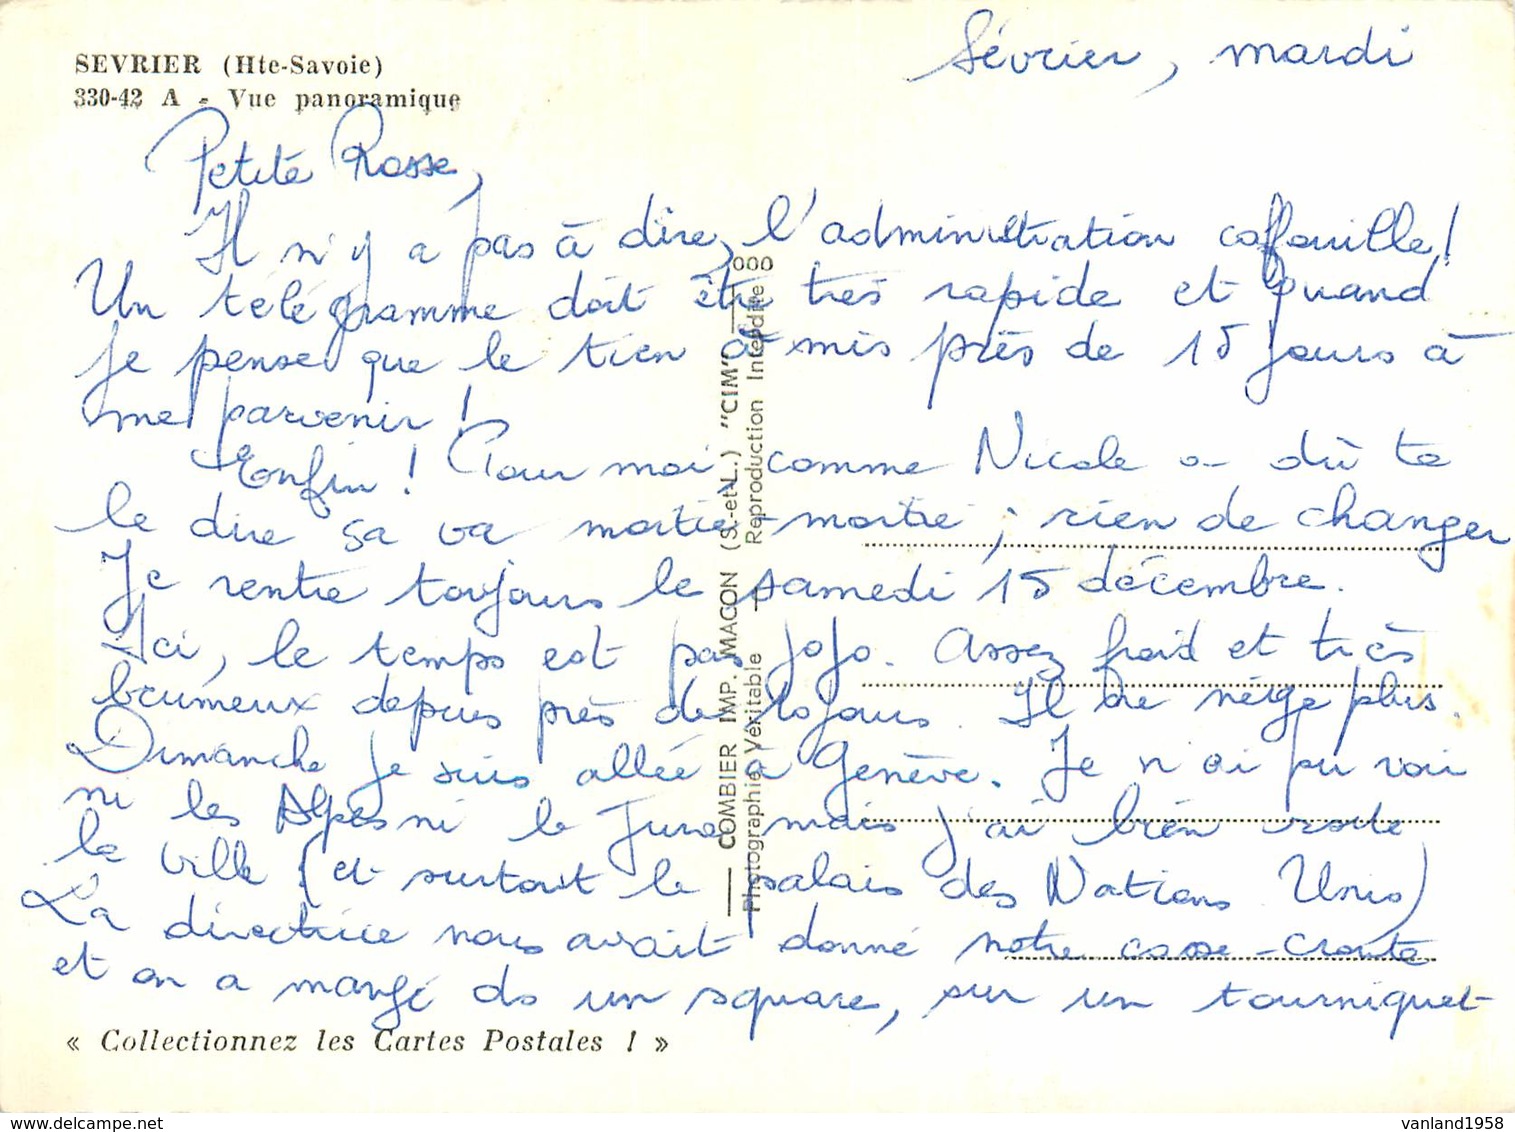 SEVRIER (Hte-Savoie)
330-42 A - Vue panoramique
Sévrier, mardi
Petite Rosse,
Il n'y a pas à dire, l'administration cafouille !
Un télégramme doit être très rapide et quand
je pense que le tien a mis près de 15 jours à
me parvenir !
Enfin ! Pour moi, comme Nicole a dû te
le dire sa va moitié-moitié ; rien de changer
Je rentre toujours le samedi 15 décembre.
Ici, le temps est pas jojo. Assez froid et très
brumeux depuis près de 10 jours. Il ne neige plus.
Dimanche je suis allée à Genève. Je n'ai pu voir
ni les Alpes ni le Jura mais j'ai bien visité
la ville (et surtout le palais des Nations Unis)
La directrice nous avait donné notre casse-croute
et on a mangé ds un square, sur un tourniquet
« Collectionnez les Cartes Postales ! »
COMBIER IMP. MACON (S.-et-L.) "CIM"
Photographie Véritable — Reproduction Interdite
000
vanland1958